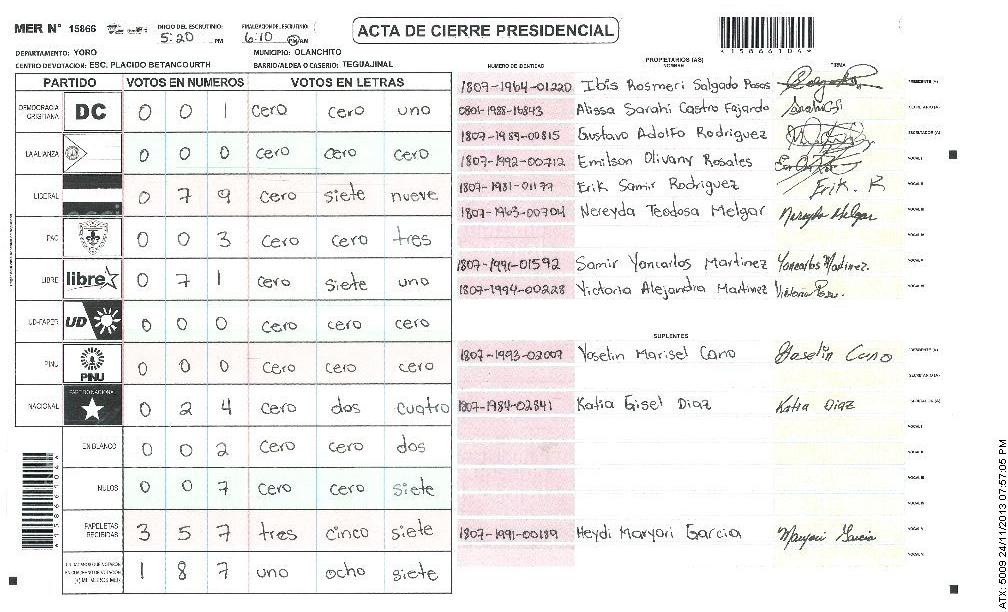 MER N° 15866
INICIO DEL ESCRUTINIO: 5:20 PM
FINALIZACION DEL ESCRUTINIO: 6:10 PM AM
ACTA DE CIERRE PRESIDENCIAL
*15866104*
DEPARTAMENTO: YORO
MUNICIPIO: OLANCHITO
CENTRO DEVOTACION: ESC. PLACIDO BETANCOURTH
BARRIO/ALDEA O CASERIO: TEGUAJINAL
PARTIDO VOTOS EN NUMEROS VOTOS EN LETRAS
DEMOCRACIA CRISTIANA DC 0 0 1 cero cero uno
LA ALIANZA 0 0 0 cero cero cero
LIBERAL 0 7 9 cero siete nueve
PAC 0 0 3 cero cero tres
LIBRE libre 0 7 1 cero siete uno
UD-FAPER UD 0 0 0 cero cero cero
PINU PINU 0 0 0 cero cero cero
NACIONAL PARTIDO NACIONAL 0 2 4 cero dos cuatro
EN BLANCO 0 0 2 cero cero dos
NULOS 0 0 7 cero cero siete
PAPELETAS RECIBIDAS 3 5 7 tres cinco siete
1 8 7 uno ocho siete
NUMERO DE IDENTIDAD
PROPIETARIOS (AS)
NOMBRE
FIRMA
1807-1964-01220 Ibis Rosmeri Salgado Rosas PRESIDENTE (A)
0801-1988-16843 Alissa Sarahi Castro Fajardo SECRETARIO (A)
1807-1989-00815 Gustavo Adolfo Rodriguez ESCRUTADOR (A)
1807-1992-00712 Emilson Olivany Rosales VOCAL I
1807-1981-01177 Erik Samir Rodriguez Erik. R VOCAL II
1807-1963-00704 Nereyda Teodosa Melgar Nereyda Melgar VOCAL III
VOCAL IV
1807-1991-01592 Samir Yoncarlos Martinez Yoncarlos Martinez. VOCAL V
1807-1994-00228 Victoria Alejandra Martinez VOCAL VI
SUPLENTES
1807-1993-02007 Yoselin Marisel Cano Yoselin Cano PRESIDENTE (A)
SECRETARIO (A)
1807-1984-02841 Katia Gisel Diaz Katia Diaz ESCRUTADOR (A)
VOCAL I
VOCAL II
VOCAL III
VOCAL IV
1807-1991-00189 Heydi Maryori Garcia Maryori Garcia VOCAL V
VOCAL VI
*15866104*
ATX: 5009 24/11/2013 07:57:05 PM